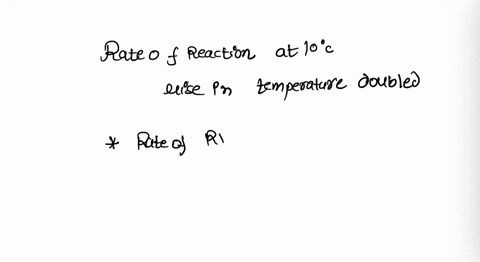 Rate of Reaction at 10°c
rise in temperature doubled
* Rate of R